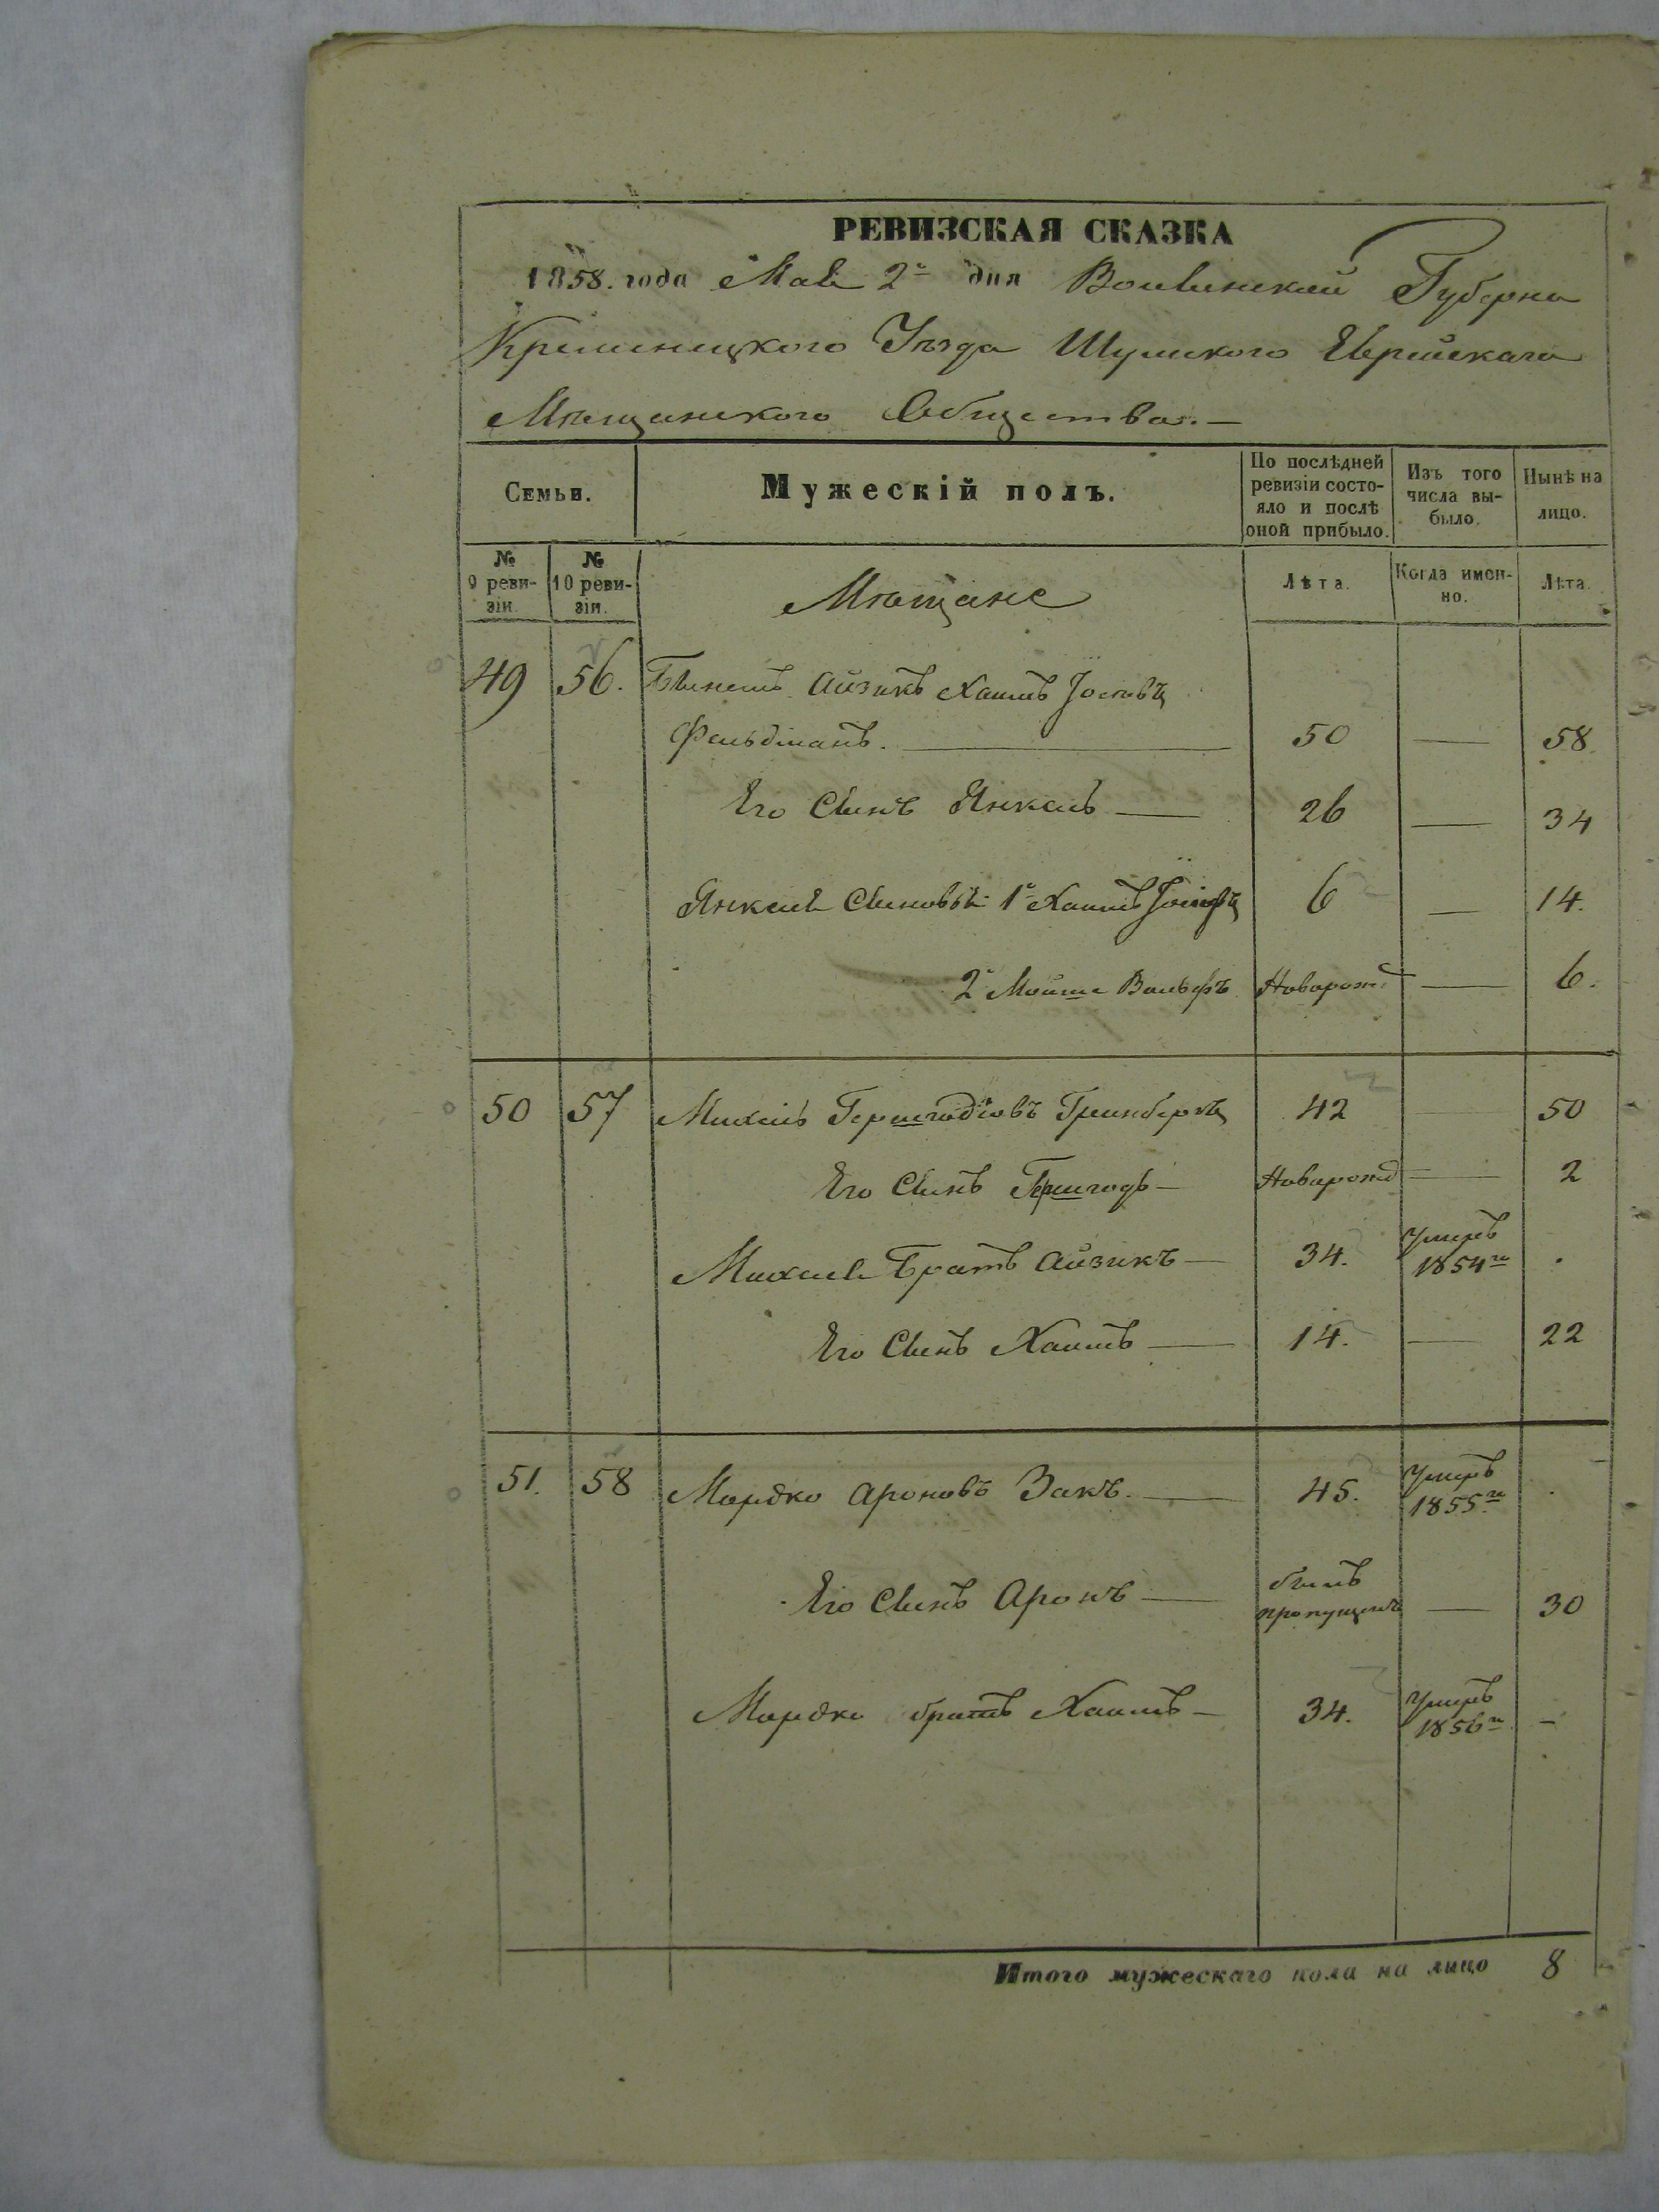 РЕВИЗСКАЯ СКАЗКА
1858. года Мая 2го дня Волынской Губерни
Кременецкого Уѣзда Шумского Еврейскаго
Мѣщанского Общества.—
Семьи.
Мужескій полъ.
По послѣдней ревизіи состояло и послѣ оной прибыло.
Изъ того числа выбыло.
Нынѣ на лицо.
№ 9 ревизіи.
№ 10 ревизіи.
Мѣщане
Лѣта.
Когда именно.
Лѣта.
49 56. Айзикъ Хаимъ
Фельдманъ. — 50 — 58
Его Сынъ Янкель — 26 — 34
Янкеля Сыновья 1й Хаимъ 6 — 14.
2й Мойше Вольфъ Новорожд — 6.
50 57 Михель Гринбергъ 42 — 50
Его Сынъ — Новорожд — 2
Михеля Братъ Айзикъ — 34. Умеръ 1854го .
Его Сынъ Хаимъ — 14. — 22
51. 58 Мордко Ароновъ Закъ. — 45. Умеръ 1855го .
Его Сынъ Аронъ — былъ пропущенъ — 30
Мордка братъ Хаимъ — 34. Умеръ 1856го —
Итого мужескаго пола на лицо 8